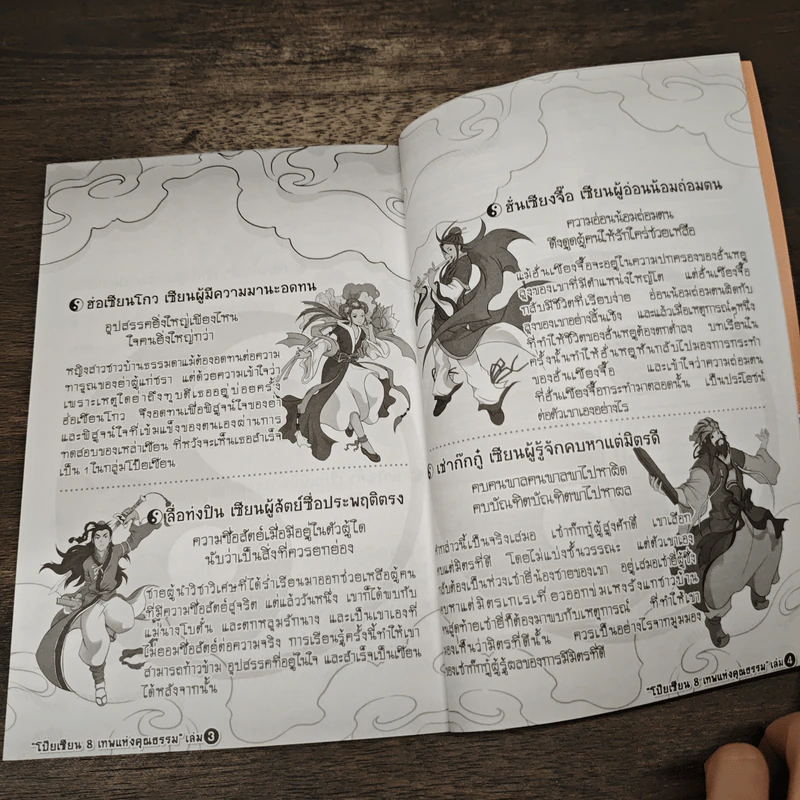 ฮ่อเซียนโกว เซียนผู้มีความมานะอดทน
อุปสรรคยิ่งใหญ่เพียงไหน
ใจคนยิ่งใหญ่กว่า
หญิงสาวชาวบ้านธรรมดาแม้ต้องอดทนต่อความ
ทารุณของย่าผู้แก่ชรา แต่ด้วยความเข้าใจว่า
เพราะเหตุใดย่าถึงทุบตีเธออยู่บ่อยครั้ง
ฮ่อเซียนโกว จึงอดทนเพื่อพิสูจน์ใจของย่า
และพิสูจน์ใจที่เข้มแข็งของตนเองผ่านการ
ทดสอบของเหล่าเซียน ที่หวังจะเห็นเธอสำเร็จ
เป็น 1 ในกลุ่มโป๊ยเซียน
ลื้อท่งปิน เซียนผู้สัตย์ซื่อประพฤติตรง
ความซื่อสัตย์เมื่อมีอยู่ในตัวผู้ใด
นับว่าเป็นสิ่งที่ควรยกย่อง
ชายผู้นำวิชาวิเศษที่ได้ร่ำเรียนมาออกช่วยเหลือผู้คน
ที่มีความซื่อสัตย์สุจริต แต่แล้ววันหนึ่ง เขาก็ได้พบกับ
แม่นางโบตั๋น และตกหลุมรักนาง และเป็นเขาเองที่
ไม่ยอมซื่อสัตย์ต่อความจริง การเรียนรู้ครั้งนี้ทำให้เขา
สามารถก้าวข้าม อุปสรรคที่อยู่ในใจ และสำเร็จเป็นเซียน
ได้หลังจากนั้น
"โป๊ยเซียน 8 เทพแห่งคุณธรรม" เล่ม 3
ฮั่นเซียงจื๊อ เซียนผู้อ่อนน้อมถ่อมตน
ความอ่อนน้อมถ่อมตน
ดึงดูดผู้คนให้รักใคร่ช่วยเหลือ
แม้ฮั่นเซียงจื๊อจะอยู่ในความปกครองของฮั่นหยู
ลุงของเขาที่มีตำแหน่งใหญ่โต แต่ฮั่นเซียงจื๊อ
กลับมีชีวิตที่เรียบง่าย อ่อนน้อมถ่อมตนผิดกับ
ลุงของเขาอย่างสิ้นเชิง และแล้วเมื่อเหตุการณ์หนึ่ง
ที่ทำให้ชีวิตของฮั่นหยูต้องตกต่ำลง บทเรียนใน
ครั้งนั้นทำให้ฮั่นหยูหันกลับไปมองการกระทำ
ของฮั่นเซียงจื๊อ และเข้าใจว่าความถ่อมตน
ที่ฮั่นเซียงจื๊อกระทำมาตลอดนั้น เป็นประโยชน์
ต่อตัวเขาเองอย่างไร
เช่าก๊กกู๋ เซียนผู้รู้จักคบหาแต่มิตรดี
คบคนพาลคนพาลพาไปหาผิด
คบบัณฑิตบัณฑิตพาไปหาผล
กล่าวนี้เป็นจริงเสมอ เช่าก๊กกู๋ผู้สูงศักดิ์ เขาเลือก
แต่มิตรที่ดี โดยไม่แบ่งชั้นวรรณะ แต่ตัวเขาเอง
ต้องเป็นห่วงเช่ายี่น้องชายของเขา อยู่เสมอเช่ายี่ผู้ซึ่ง
คบหาแต่มิตรเกเรเที่ยวออกข่มเหงรังแกชาวบ้าน
สุดท้ายเช่ายี่ก็ต้องมาพบกับเหตุการณ์ ที่ทำให้เขา
เห็นว่ามิตรที่ดีนั้น ควรเป็นอย่างไรจากมุมมอง
ของเช่าก๊กกู๋ผู้รู้ผลของการมีมิตรที่ดี
"โป๊ยเซียน 8 เทพแห่งคุณธรรม" เล่ม 4